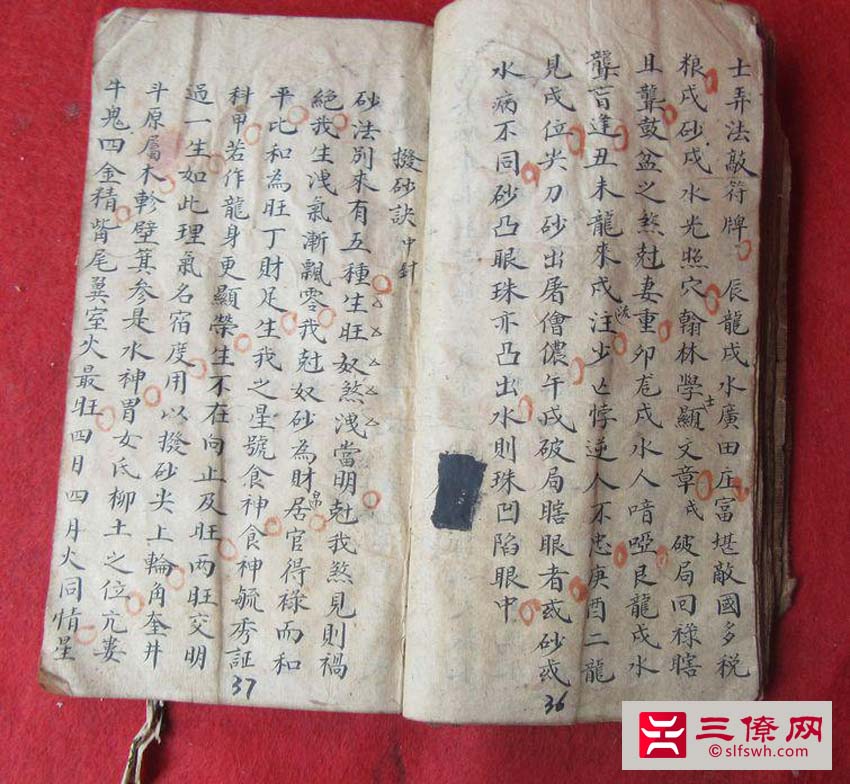 士弄法敲符牌 辰龍戌水廣田庄富堪敵國多税
粮戌砂戌水光照穴翰林學士顯文章 破局回禄瞎
且聾鼓盆之煞尅妻重卯龙戌水人喑啞艮龍戌水
聾盲逢丑未龍來戌注少亡悖逆人不忠庚酉二龍
見戌位尖刀砂出屠儈儂午戌破局瞎眼者或砂或
水病不同砂凸眼珠亦凸出水則珠凹陷眼中
36
撥砂訣中針
砂法別來有五種生旺奴煞洩當明尅我煞見則禍
絕我生洩氣漸飄零我尅奴砂為財帛居官得禄而和
平比和為旺丁財足生我之星號食神食神毓秀証
科甲若作龍身更顯榮生不在向止及旺两旺交明
過一生如此理氣名宿度用以撥砂尖上輪角奎井
斗原屬木軫壁箕参是水神胃女氐柳土之位亢婁
牛鬼四金精觜尾翼室火最旺四月四月火同情星
37
三僚网
©slfswh.com